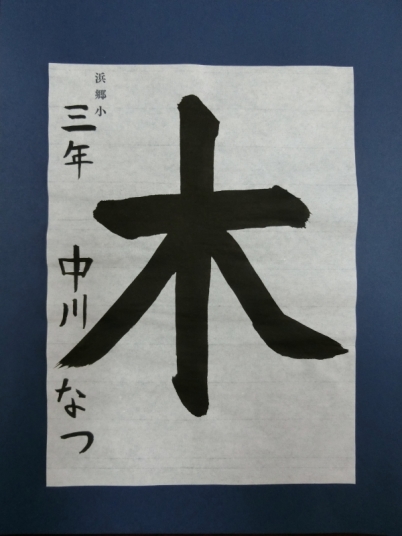 木
浜郷小
三年 中川なつ